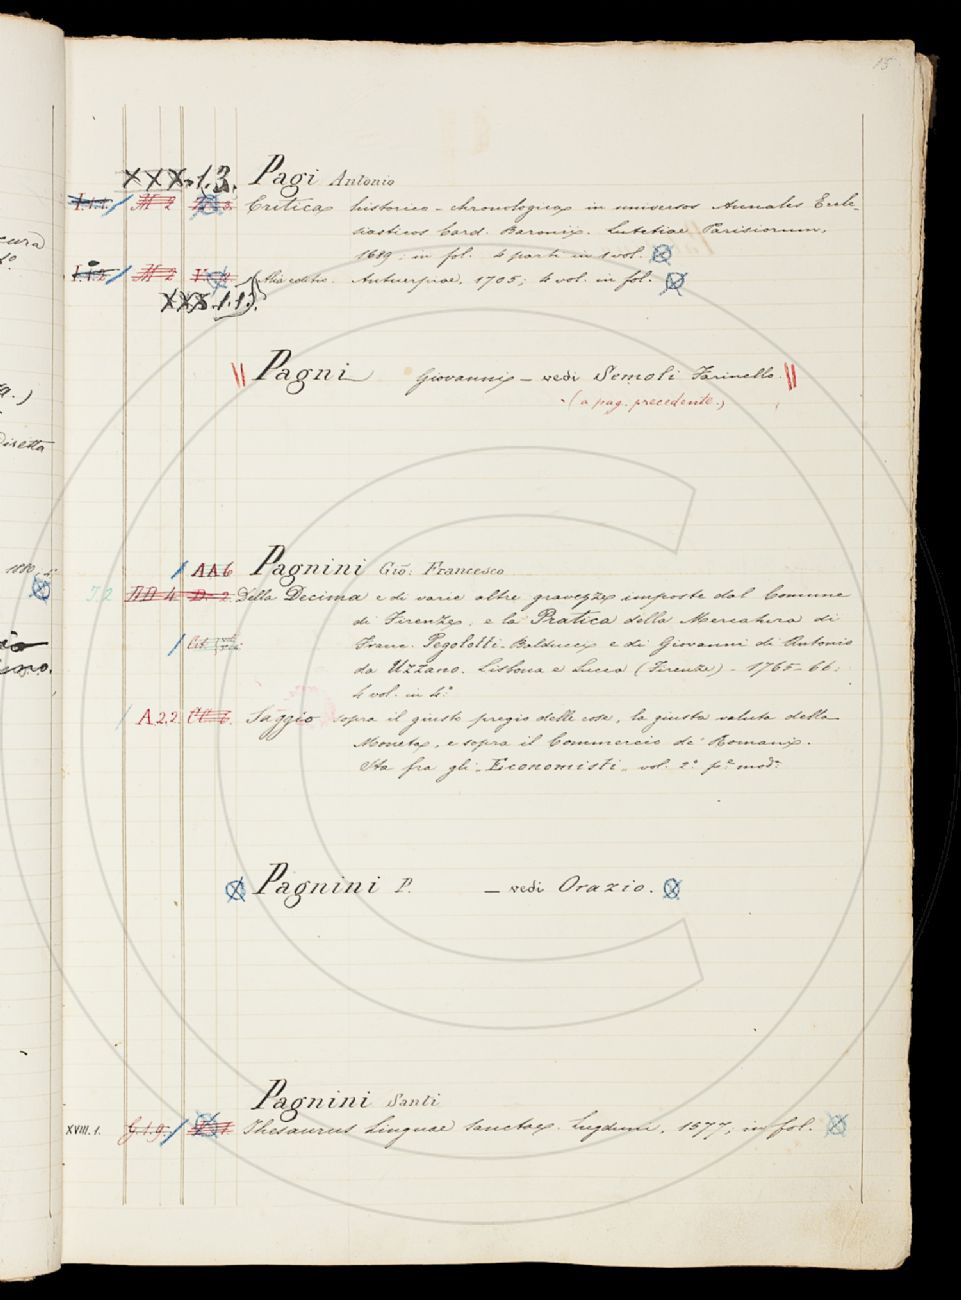 15
XXX.1.3. Pagi Antonio
I.1.1. M 2 Critica historico-chronologica in universos Annales Eccle-
siasticos Card. Baronii. Lutetiae Parisiorum,
1689; in fol. 4 parti in 1 vol.
I.1.2 M 2 Alia editio. Antuerpiae, 1705; 4 vol. in fol.
XXX.1.1).
Pagni Giovanni - vedi Semoli Farinello.
(a pag. precedente.)
AA6 Pagnini Gio: Francesco
I.2 D. 2 Della Decima e di varie altre gravezze imposte dal Comune
di Firenze, e la Pratica della Mercatura di
Franc. Pegolotti-Balducci e di Giovanni di Antonio
da Uzzano. Lisbona e Lucca (Firenze) - 1765-66;
4 vol. in 4.º
A.2.2. Saggio sopra il giusto pregio delle cose, la giusta valuta della
Moneta, e sopra il Commercio de' Romani.
Sta fra gli "Economisti" vol. 2.º p.e mod.a
Pagnini P. - vedi Orazio.
Pagnini Santi
XVIII.1. J.1.9. Thesaurus Linguae Sanctae. Lugduni, 1577; in fol.